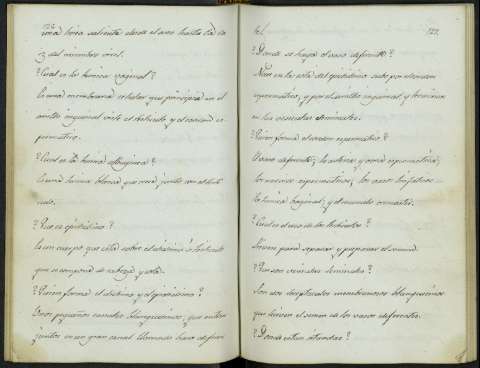 una linea saliente desde el ano hasta la raiz
z del miembro viril.
¿Cual es la tunica vaginal?
Es una membrana celular que principia en el
anillo inguinal viste el testiculo y el cordon es-
permatico.
¿Cual es la tunica albuginea?
Es una tunica blanca que está junto con el testi-
culo.
¿Que es epididimo?
Es un cuerpo que está sobre el testiculo
que se compone de cabeza y cola.
¿Quien forma el didimo y el epididimo?
Unos pequeños canales blanquecinos, que entran
juntos en un gran canal llamado baso deferen
te.
122.
¿Donde se halla el vaso deferente?
Nace en la cola del epididimo sube por el cordon
espermatico, y por el anillo inguinal, y termina
en las vesiculas seminales.
¿Quien forma el cordon espermatico?
El vaso deferente; la arteria y vena espermatica;
los nervios espermaticos; los vasos linfaticos
la tunica baginal; y el musculo cremaster.
¿Cual es el uso de los testiculos?
Sirven para separar y preparar el semen.
¿Que son vesiculas seminales?
Son dos receptaculos membranosos blanquecinos
que reciven el semen de los vasos deferentes.
¿Donde estan situadas?